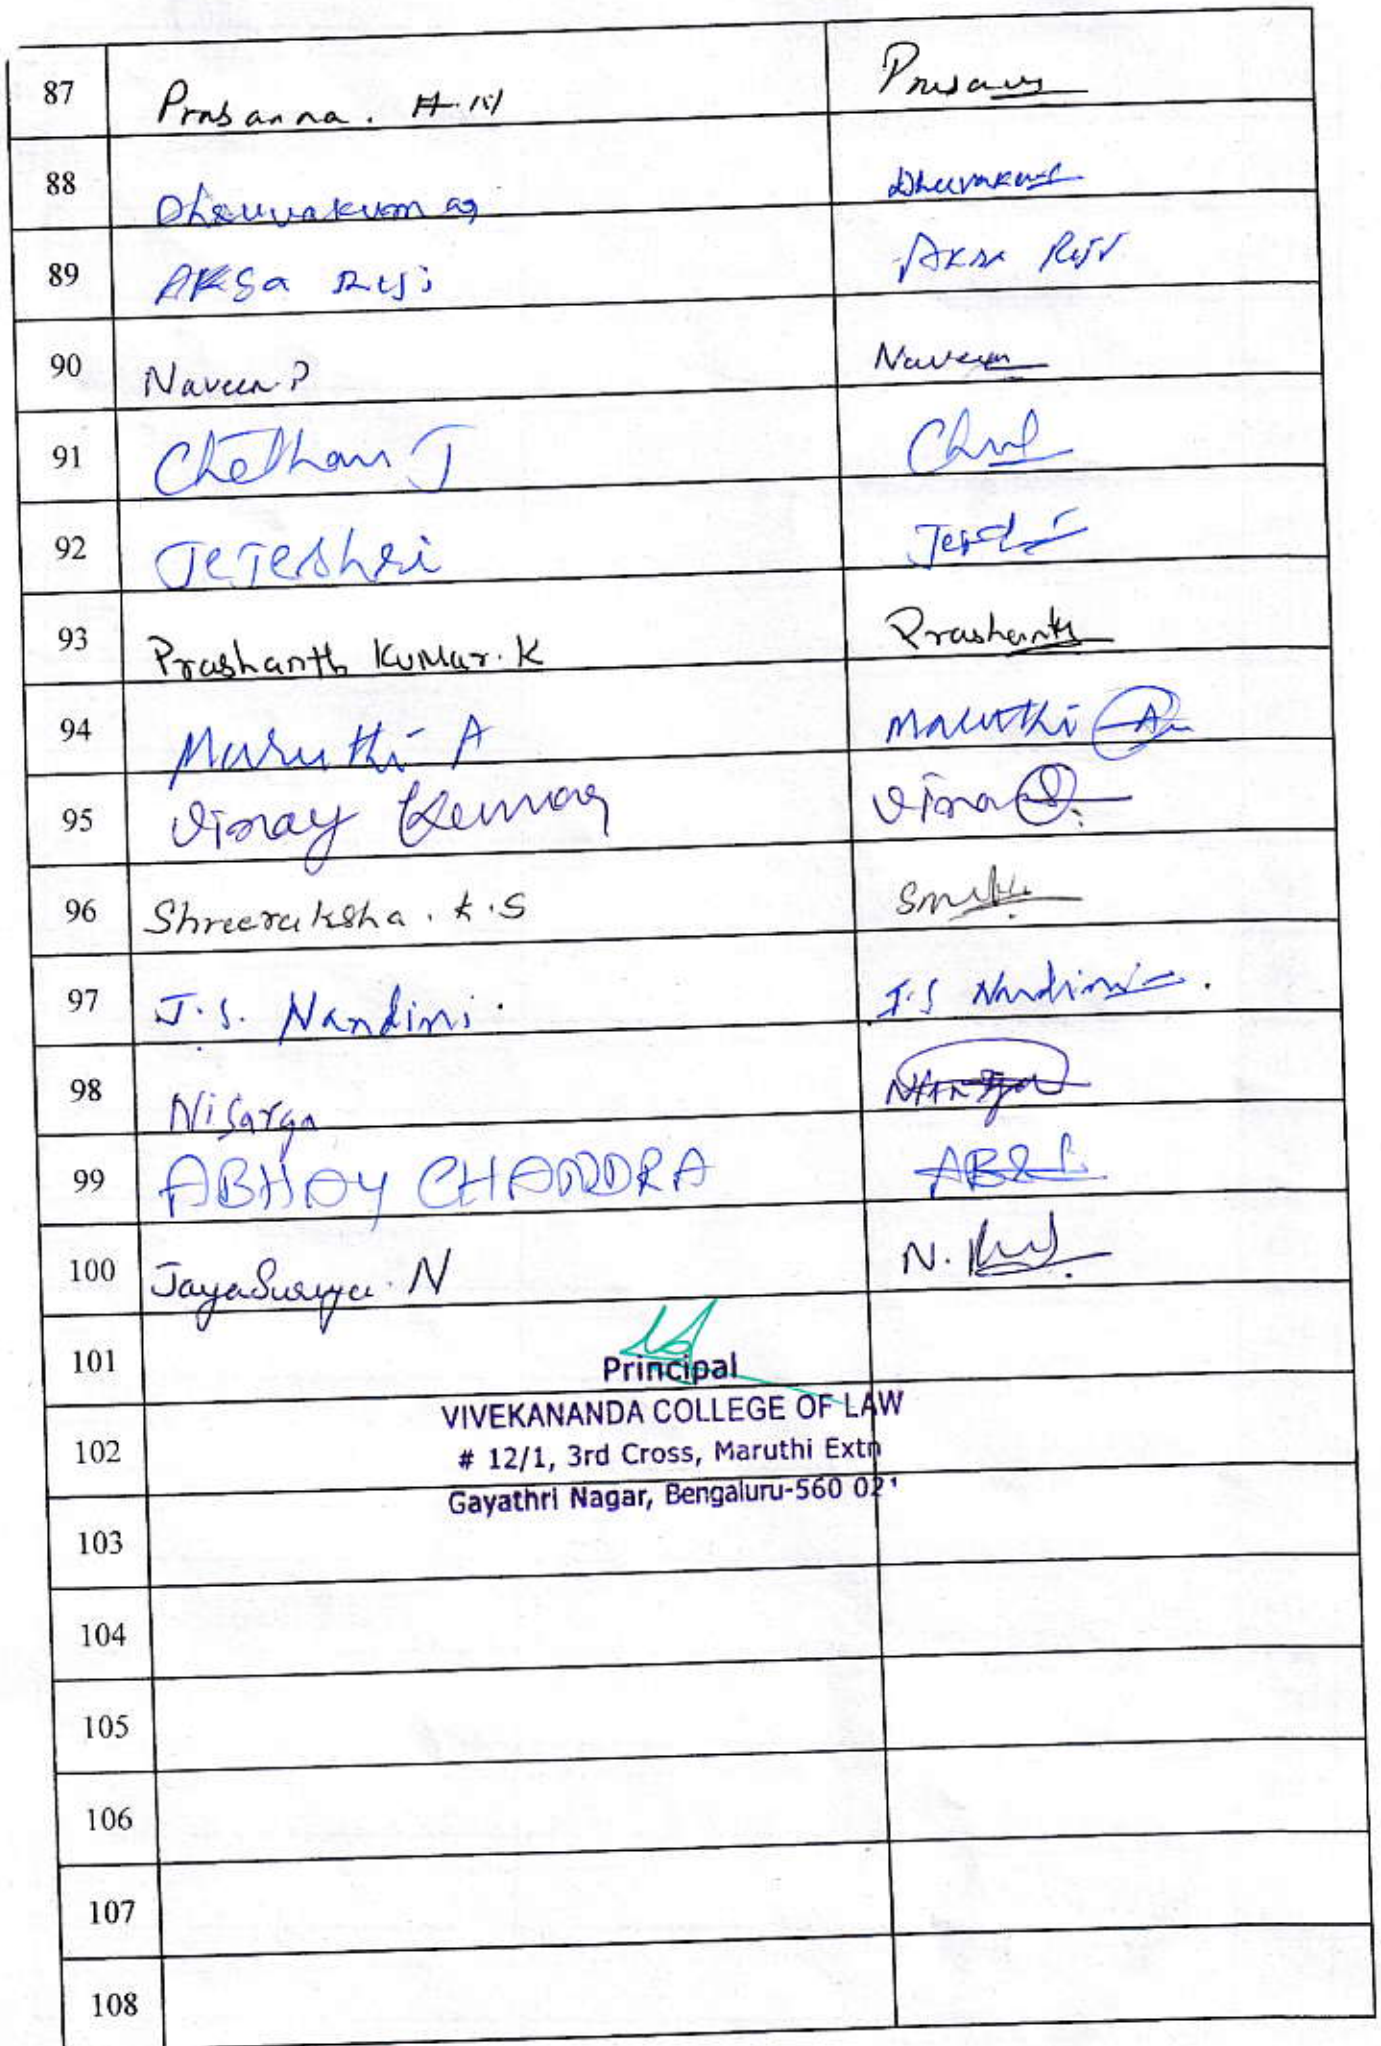 87 Prasanna. H.M
88 Dhruvakumar Dhruvakumar
89 AKSa Riji Aksa Reji
90 Naveen.P Naveen
91 Chethan J
92 TeJeshri
93 Prashanth KuMar.K Prashanth
94 Maruthi A Maruthi A
95 Vinay Kumar Vinay
96 Shreeraksha. K.S
97 J.S. Nandini. J.S Nandini.
98 Nisarga Nisarga
99 ABHAY CHANDRA
100 JayaSurya. N N.
101
Principal
VIVEKANANDA COLLEGE OF LAW
102
# 12/1, 3rd Cross, Maruthi Extn
Gayathri Nagar, Bengaluru-560 021
103
104
105
106
107
108